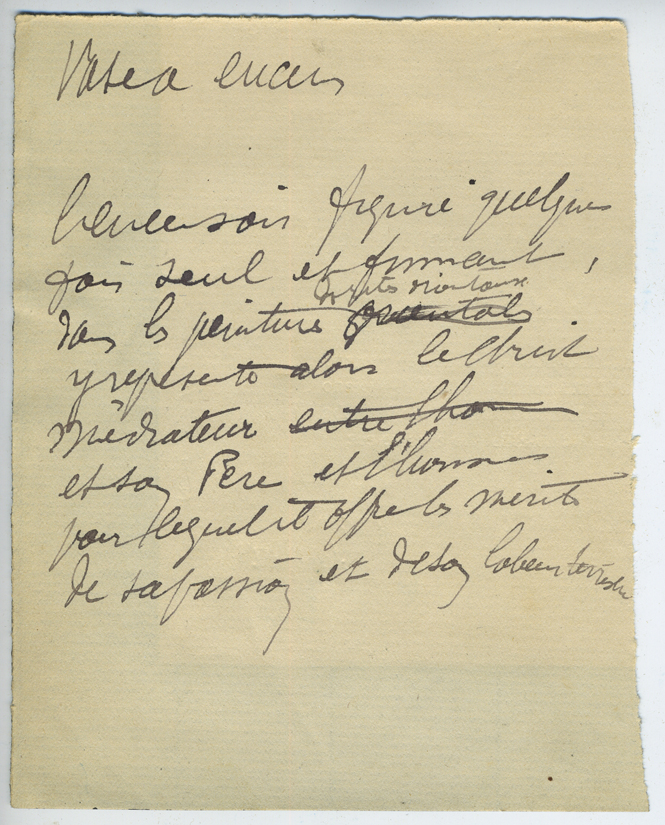 Vase a encens
l'encensoir figure quelques
fois seul et fumant,
dans les peintures orientales
y represente alors le Christ
médiateur entre l'hom
et son Père et l'homme
pour lequel il offre les mérites
de sa passion et de son labeur terrestre